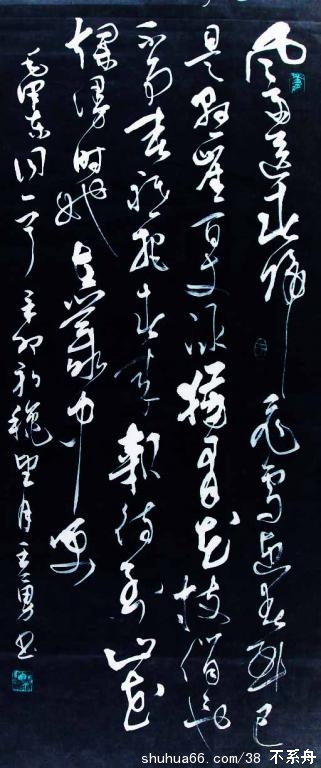 風雨送春歸飛雪迎春到已
是懸崖百丈冰猶有花枝俏也
不争春只把春来報待到山花
爛漫時她在叢中笑
毛泽东词一首 辛卯初穐望月王勇书
shuhua66.com/38 不系舟